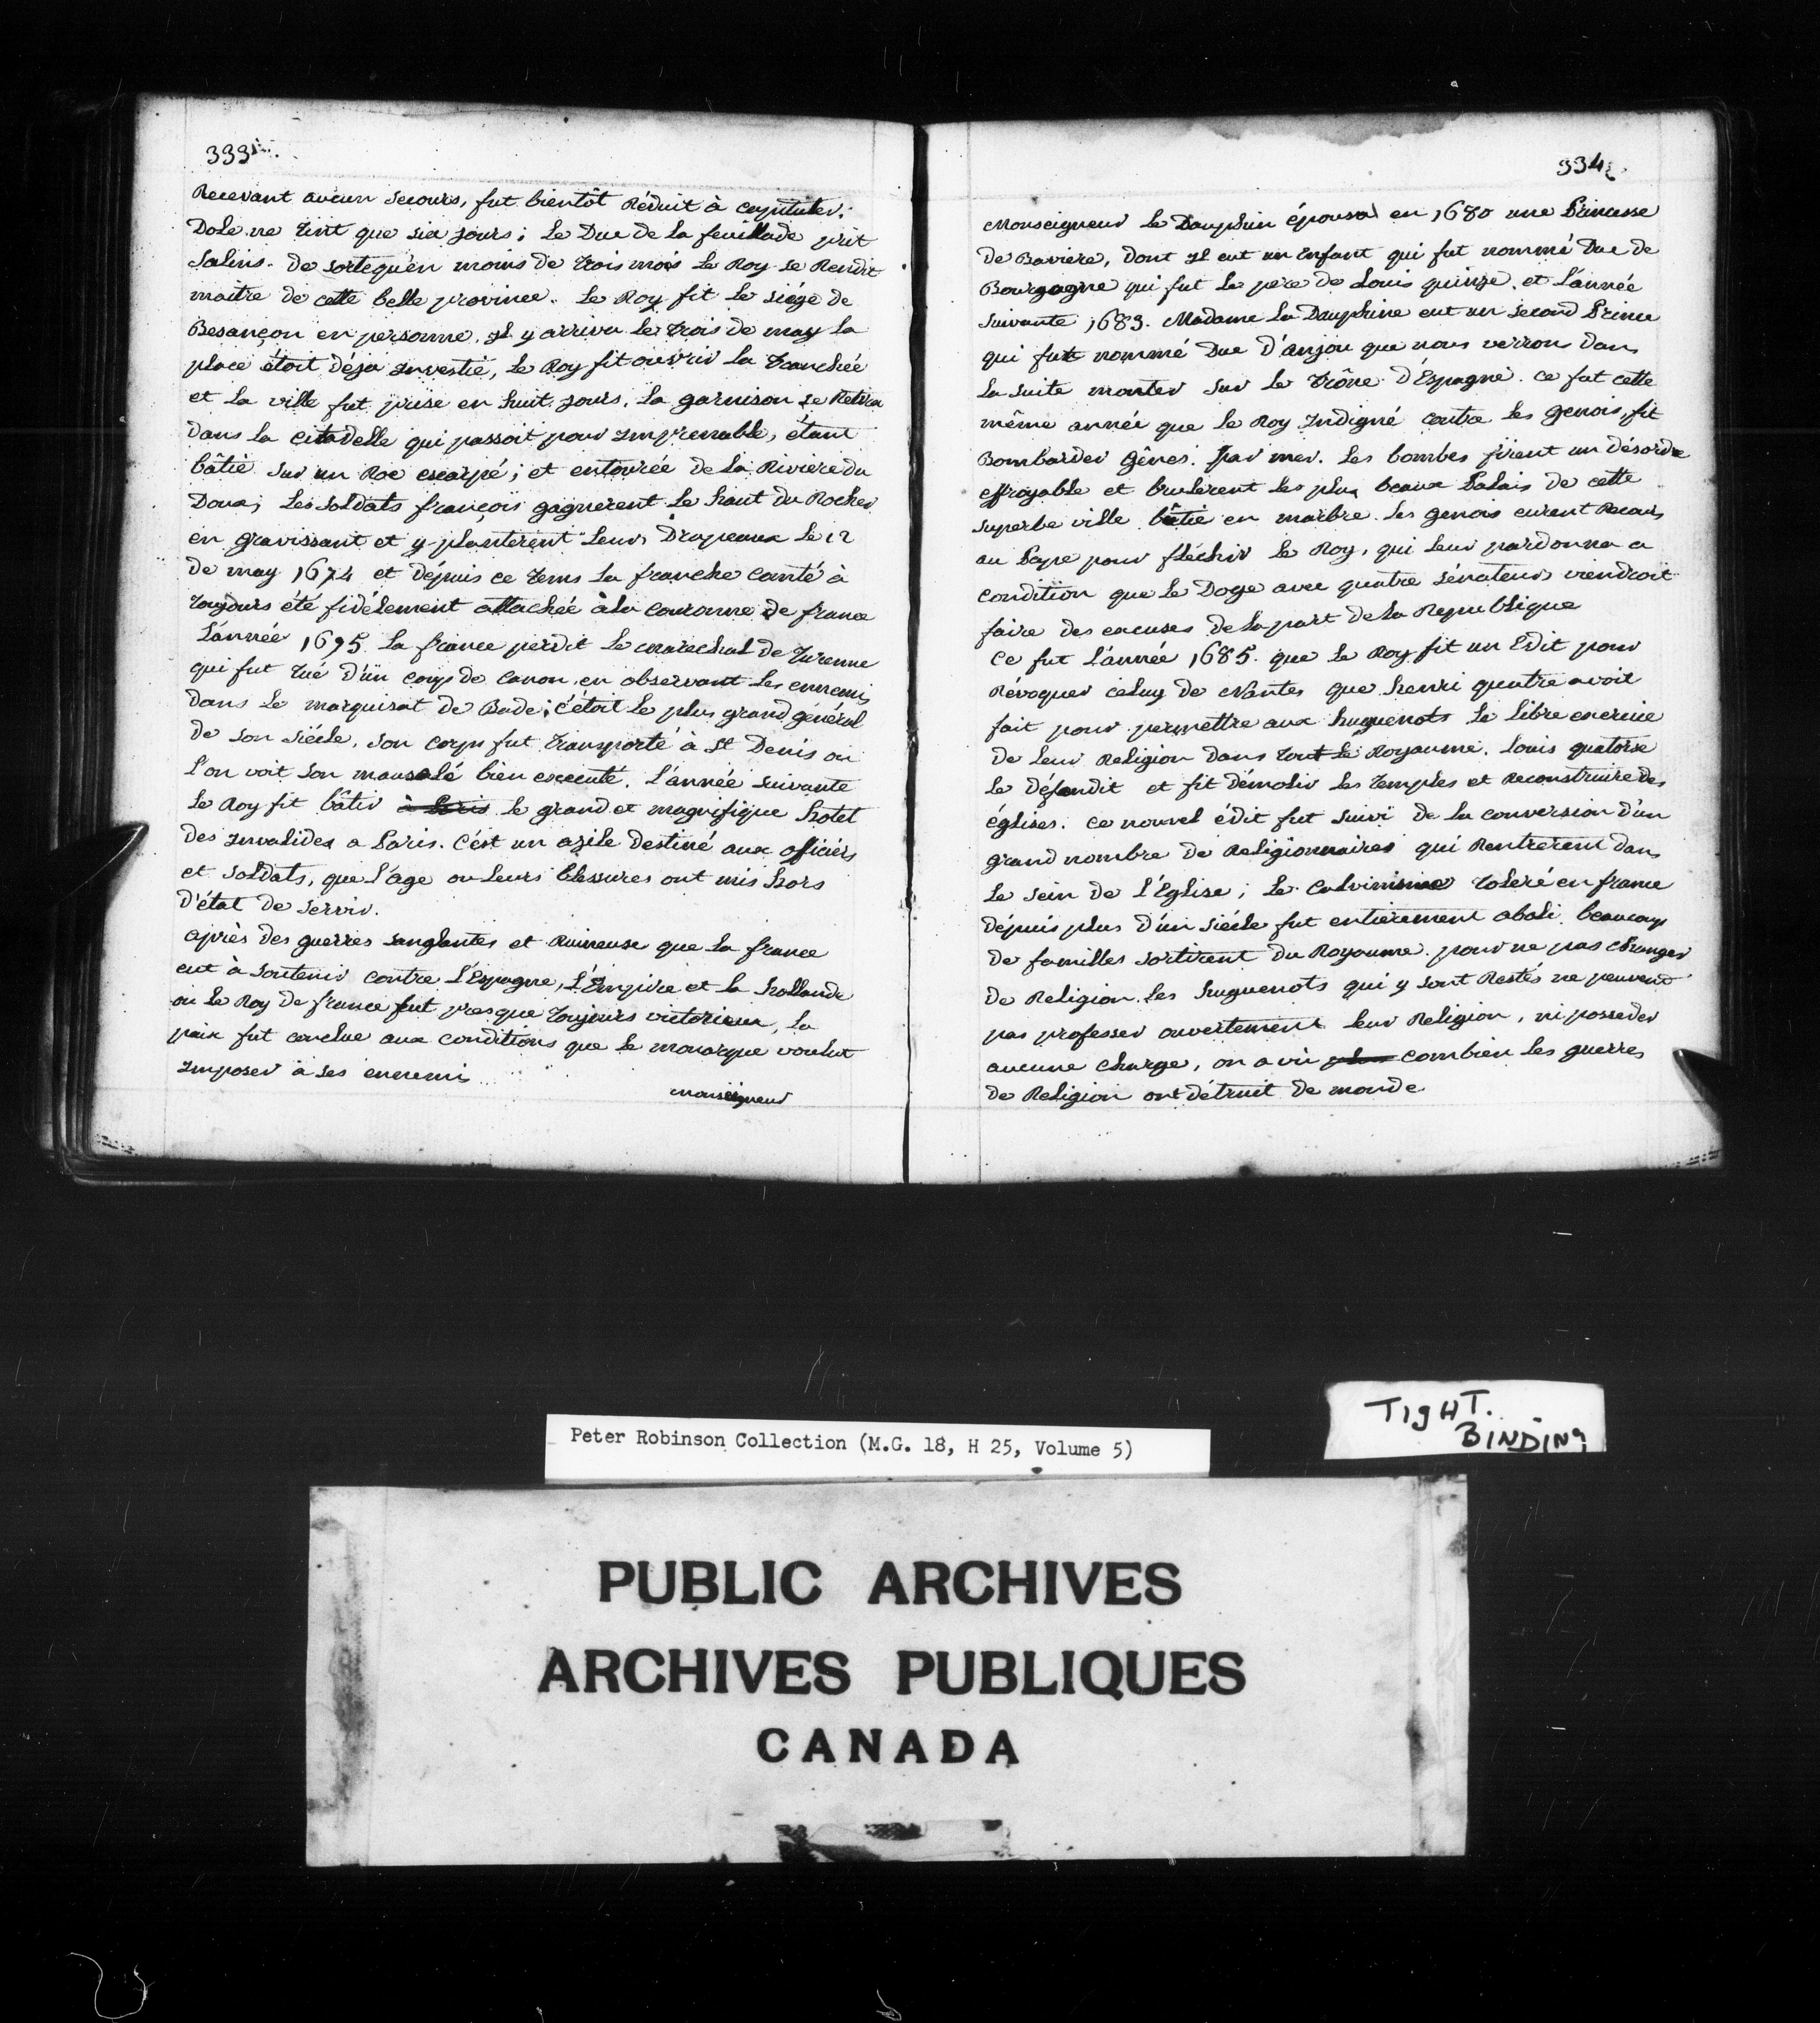 333
Recevant aucun secours, fut bientôt Réduit à capituler.
Dole ne tint que six jours; le Duc de la feuillade prit
Salins. de sortequ'en moins de trois mois le Roy se Rendit
maitre de cette belle province. Le Roy fit le siége de
Besançon en personne, Il y arriva le trois de may la
place étoit déja Investie, le Roy fit ouvrir la tranchée
et la ville fut prise en huit jours, la garnison se Retira
dans la citadelle qui passoit pour Imprenable, étant
bâtie sur un Roc escarpé; et entourée de la Riviere du
Doux; les soldats françois gagnerent le haut du Rocher
en gravissant et y planterent leurs Drapeaux le 12
de may 1674 et dépuis ce tems la franche comté à
toujours été fidélement attachée à la couronne de france
L'année 1675 la france perdit le marechal de Turenne
qui fut tué d'un coup de canon en observant les ennemis
dans le marquisat de Bade; c'étoit le plus grand général
de son siécle, son corps fut transporté à St Denis ou
l'on voit son mausolé bien executé. L'année suivante
le Roy fit bâtir à Paris le grand et magnifique hotel
des Invalides a Paris. c'ést un azile destiné aux oficiers
et soldats, que l'age ou leurs blessures ont mis hors
d'état de servir.
après des guerres sanglantes et Ruineuse que la france
eut à soutenir contre l'Espagne, l'Empire et la hollande
ou le Roy de france fut presque toujours victorieux, la
paix fut conclue aux conditions que le monarque voulut
Imposer à ses ennemis
monseigneur
334
Monseigneur le Dauphin épousa en 1680 une Princesse
de Baviere, dont Il eut un enfant qui fut nommé Duc de
Bourgogne qui fut le pere de Louis quinze. et l'année
suivante 1683. Madame la Dauphine eut un second Prince
qui fut nommé Duc d'anjou que nous verrons dans
la suite monter sur le trône d'Espagne. ce fut cette
même année que le Roy Indigné contre les genois, fit
Bombarder Gênes. par mer. les bombes firent un désordre
effroyable et brulerent les plus beaux Palais de cette
superbe ville bâtie en marbre. les genois eurent Recours
au Pape pour fléchir le Roy, qui leur pardonna a
condition que le Doge avec quatre sénateurs viendroit
faire des excuses de la part de la Republique
Ce fut l'année 1685. que le Roy fit un Edit pour
Révoquer celuy de Nantes que henri quatre avoit
fait pour permettre aux huguenots le libre exercice
de leur Religion dans tout le Royaume. Louis quatorse
le défendit et fit démolir les temples et Reconstruire des
églises. ce nouvel édit fut suivi de la conversion d'un
grand nombre de Religionnaires qui Rentrerent dans
le sein de l'Eglise; le calvinisme toleré en france
dépuis plus d'un siécle fut entierement aboli beaucoup
de familles sortirent du Royaume pour ne pas changer
de Religion. les huguenots qui y sont Restés ne peuvent
pas professer ouvertement leur Religion, ni posseder
aucune charge, on a vû plus combien les guerres
de Religion ont détruit de monde
TIGHT.
BINDING
Peter Robinson Collection (M.G. 18, H 25, Volume 5)
PUBLIC ARCHIVES
ARCHIVES PUBLIQUES
CANADA